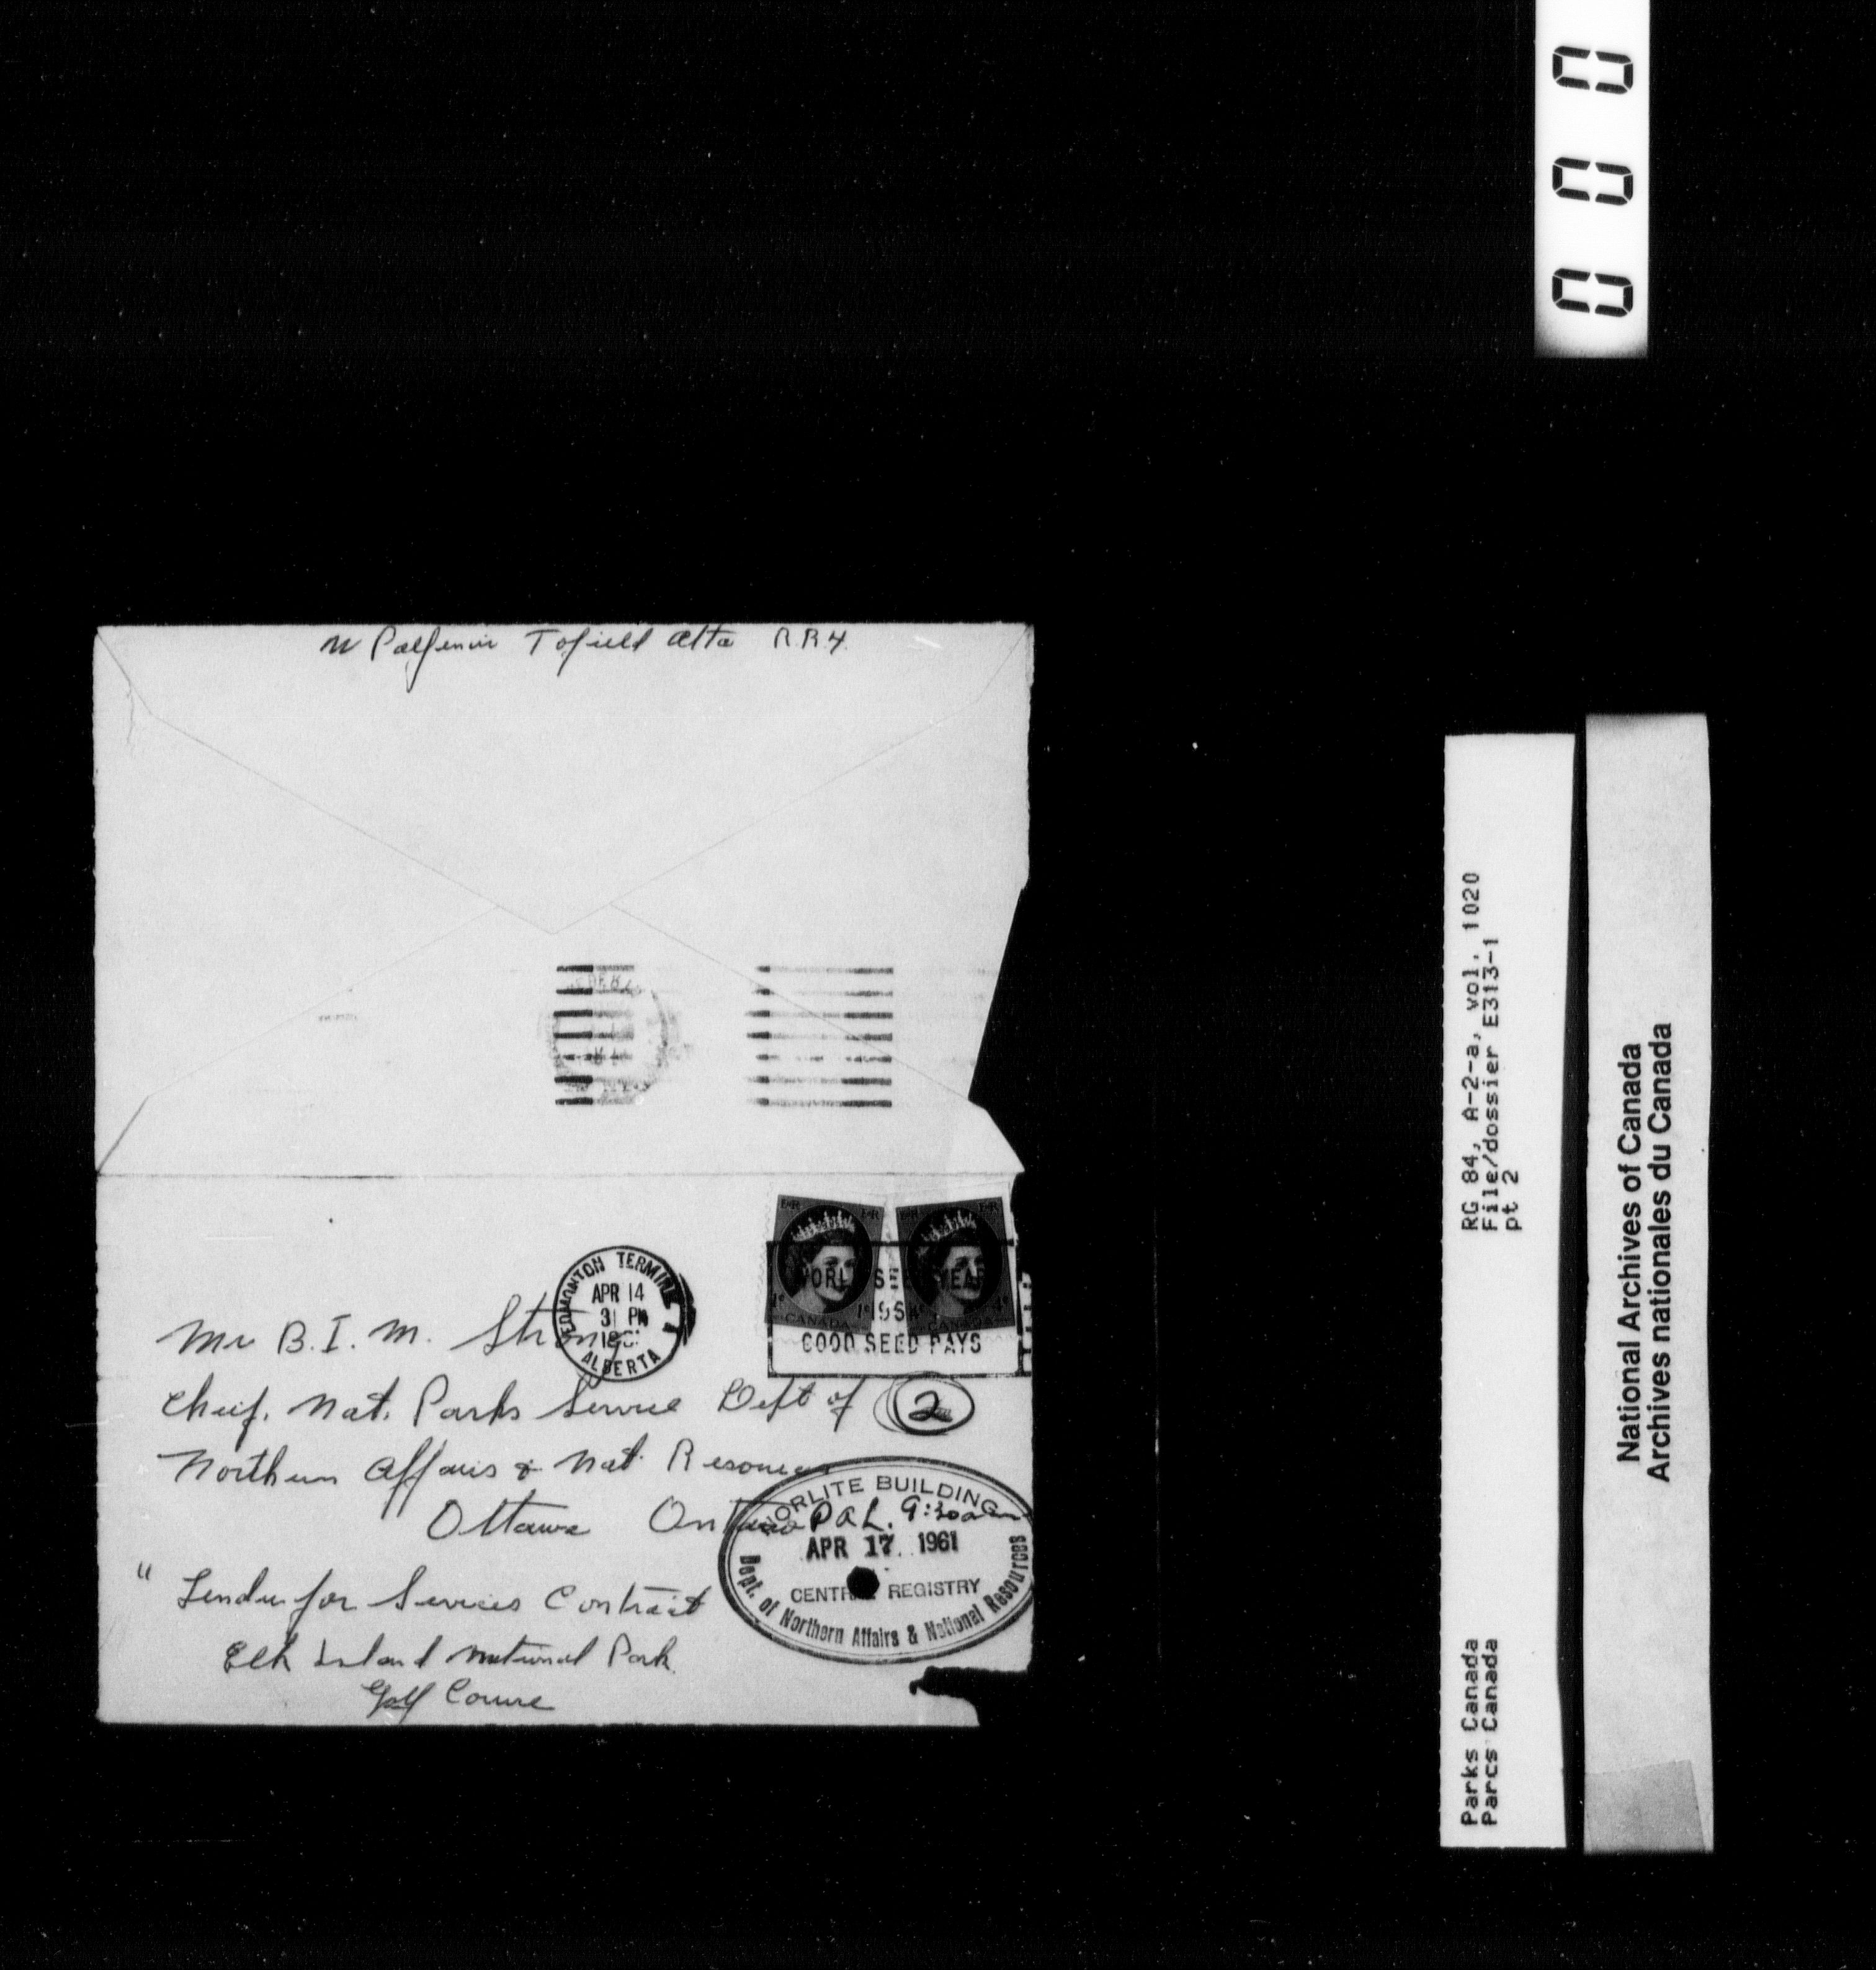 0 0 0
Tofield Alta R.R.4.
EDMONTON TERMINAL
APR 14
31 PM
ALBERTA
E R E R
E R E R
WORLD SEED YEAR
CANADA CANADA
GOOD SEED PAYS
Mr B.I.M. Strong
Cheif. Nat. Parks Service Dept of
2
Northern Affairs & Nat. Resources
Ottawa Ontario
NORLITE BUILDING
9:30am
APR 17 1961
CENTRAL REGISTRY
Dept. of Northern Affairs & National Resources
" Tender for Services Contract
Elk Island National Park.
Golf Course
RG 84, A-2-a, vol. 1020
File/dossier E313-1
pt 2
Parks Canada
Parcs Canada
National Archives of Canada
Archives nationales du Canada